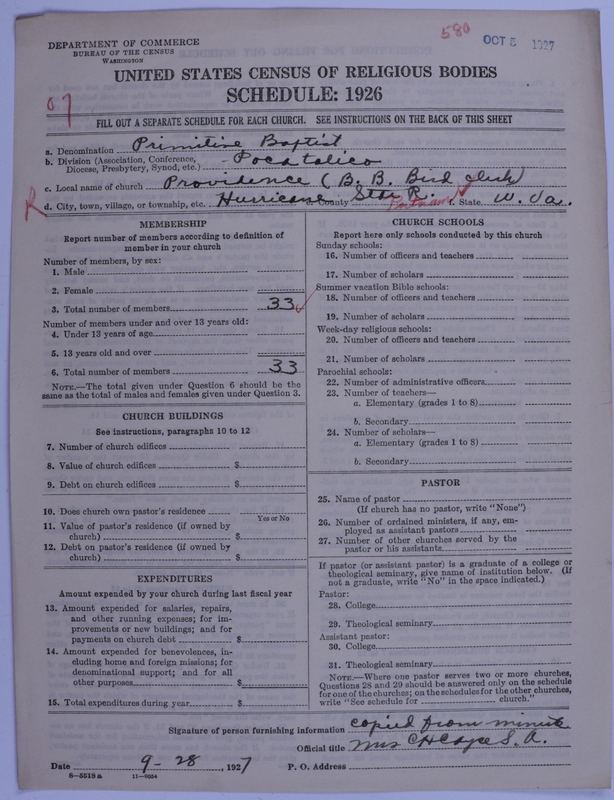 580
OCT 5 1927
DEPARTMENT OF COMMERCE
BUREAU OF THE CENSUS
WASHINGTON
UNITED STATES CENSUS OF RELIGIOUS BODIES
SCHEDULE: 1926
07
FILL OUT A SEPARATE SCHEDULE FOR EACH CHURCH. SEE INSTRUCTIONS ON THE BACK OF THIS SHEET
a. Denomination Primitive Baptist
b. Division (Association, Conference, Diocese, Presbytery, Synod, etc.) Pocatalico
c. Local name of church Providence (B. B. Bird clerk)
R
d. City, town, village, or township, etc. Hurricane Star R. e. County Putnam f. State W. Va.
MEMBERSHIP
Report number of members according to definition of
member in your church
Number of members, by sex:
1. Male
2. Female
3. Total number of members 33
Number of members under and over 13 years old:
4. Under 13 years of age
5. 13 years old and over
6. Total number of members 33
NOTE.—The total given under Question 6 should be the
same as the total of males and females given under Question 3.
CHURCH BUILDINGS
See instructions, paragraphs 10 to 12
7. Number of church edifices
8. Value of church edifices $
9. Debt on church edifices $
10. Does church own pastor's residence
Yes or No
11. Value of pastor's residence (if owned by
church) $
12. Debt on pastor's residence (if owned by
church) $
EXPENDITURES
Amount expended by your church during last fiscal year
13. Amount expended for salaries, repairs,
and other running expenses; for im-
provements or new buildings; and for
payments on church debt $
14. Amount expended for benevolences, in-
cluding home and foreign missions; for
denominational support; and for all
other purposes $
15. Total expenditures during year $
CHURCH SCHOOLS
Report here only schools conducted by this church
Sunday schools:
16. Number of officers and teachers
17. Number of scholars
Summer vacation Bible schools:
18. Number of officers and teachers
19. Number of scholars
Week-day religious schools:
20. Number of officers and teachers
21. Number of scholars
Parochial schools:
22. Number of administrative officers
23. Number of teachers—
a. Elementary (grades 1 to 8)
b. Secondary
24. Number of scholars—
a. Elementary (grades 1 to 8)
b. Secondary
PASTOR
25. Name of pastor
(If church has no pastor, write "None")
26. Number of ordained ministers, if any, em-
ployed as assistant pastors
27. Number of other churches served by the
pastor or his assistants
If pastor (or assistant pastor) is a graduate of a college or
theological seminary, give name of institution below. (If
not a graduate, write "No" in the space indicated.)
Pastor:
28. College
29. Theological seminary
Assistant pastor:
30. College
31. Theological seminary
NOTE.—Where one pastor serves two or more churches,
Questions 28 and 29 should be answered only on the schedule
for one of the churches; on the schedules for the other churches,
write "See schedule for church."
Signature of person furnishing information copied from minute
Official title Mrs C H Cayce S. A.
Date 9-28, 1927 P. O. Address
8-5518a 11-0054